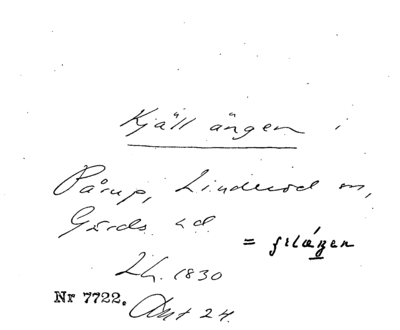 Kjäll ängen i
Pårup, Linderöd sn,
Gärds hd
= gilägen
Lh. 1830
Nr 7722. Akt 24.